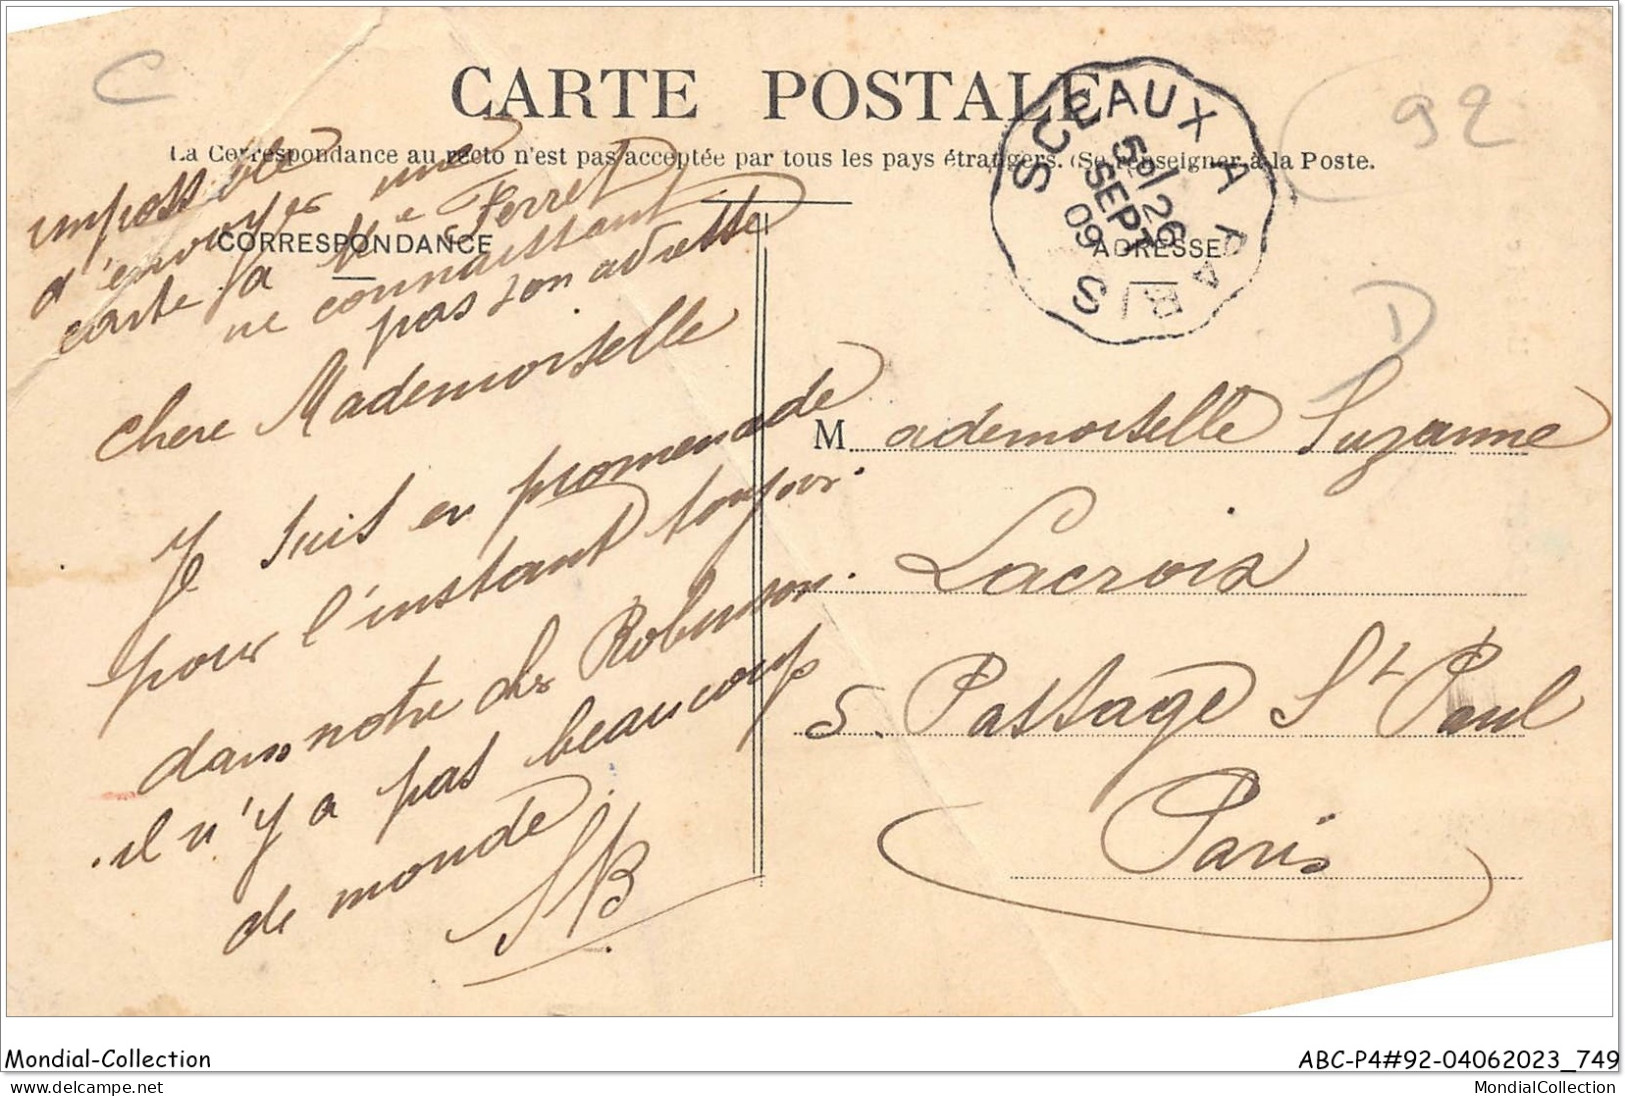 C
CARTE POSTALE
La Correspondance au recto n'est pas acceptée par tous les pays étrangers. (Se renseigner à la Poste.
SCEAUX A PARIS
5e/26
SEPT
09
92
impossible
d'envoyer une
carte a Mle Ferret
ne connaissant
pas son adresse
CORRESPONDANCE
ADRESSE
D
chere Mademoiselle
Je suis en promenade
pour l'instant toujour
dans notre cher Robinson
il n'y a pas beaucoup
de monde
SB
Mademoiselle Suzanne
Lacroix
5. Passage St Paul
Paris
Mondial-Collection
ABC-P4#92-04062023_749
delcampe.net
MondialCollection